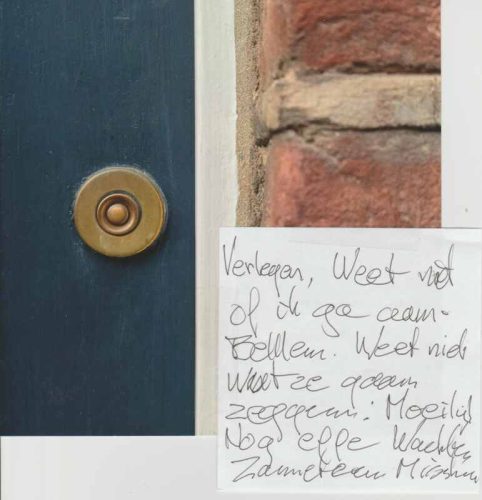 Verlegen, Weet niet
of ik ga aan-
Bellen. Weet niet
Wat ze gaan
zeggen: Moeilijk
Nog effe Wachten
Zometeen Misschien